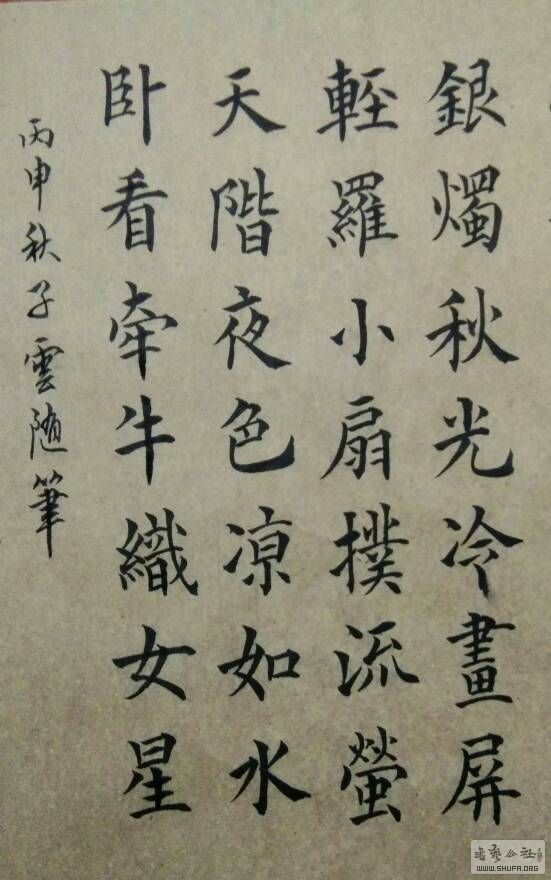 銀燭秋光冷畫屏
輕羅小扇撲流螢
天階夜色凉如水
卧看牽牛織女星
丙申秋子雲随筆
书艺公社
WWW.SHUFA.ORG